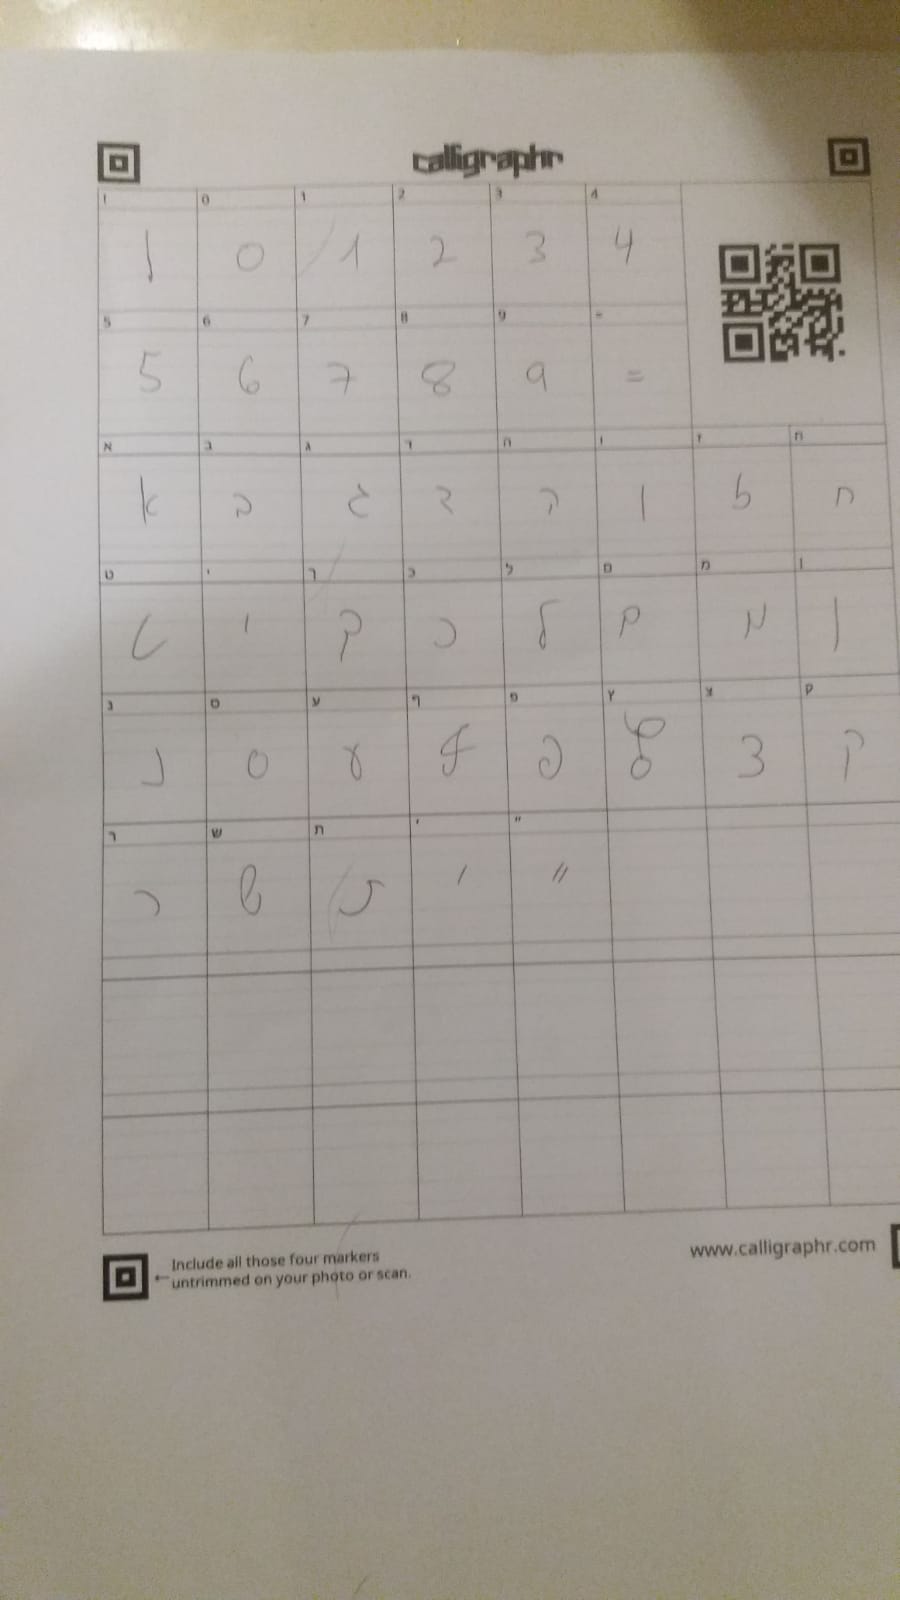 calligraphr
! 0 1 2 3 4
! 0 1 2 3 4
5 6 7 8 9 =
5 6 7 8 9 =
א ב ג ד ה ו ז ח
א ב ג ד ה ו ז ח
ט י ך כ ל ם מ ן
ט י ך כ ל ם מ ן
נ ס ע ף פ ץ צ ק
נ ס ע ף פ ץ צ ק
ר ש ת ' "
ר ש ת ' "
Include all those four markers
← untrimmed on your photo or scan.
www.calligraphr.com